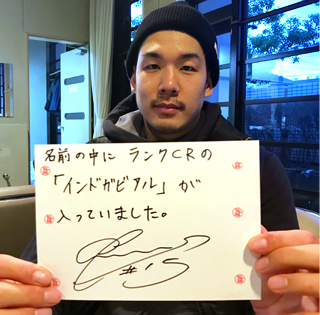 名前の中に ランクCRの
「インドガビアル」が
入っていました。
#15